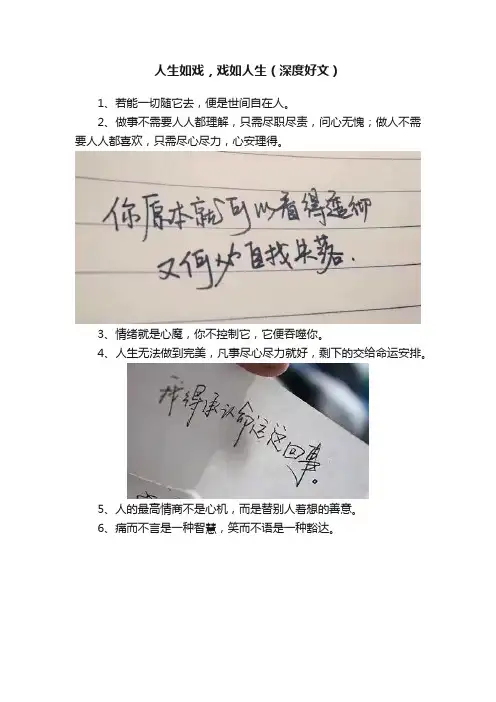 人生如戏，戏如人生（深度好文）
1、若能一切随它去，便是世间自在人。
2、做事不需要人人都理解，只需尽职尽责，问心无愧；做人不需
要人人都喜欢，只需尽心尽力，心安理得。
你原本就可以看得透彻
又何必自找失落.
3、情绪就是心魔，你不控制它，它便吞噬你。
4、人生无法做到完美，凡事尽心尽力就好，剩下的交给命运安排。
我得承认命运这回事。
5、人的最高情商不是心机，而是替别人着想的善意。
6、痛而不言是一种智慧，笑而不语是一种豁达。